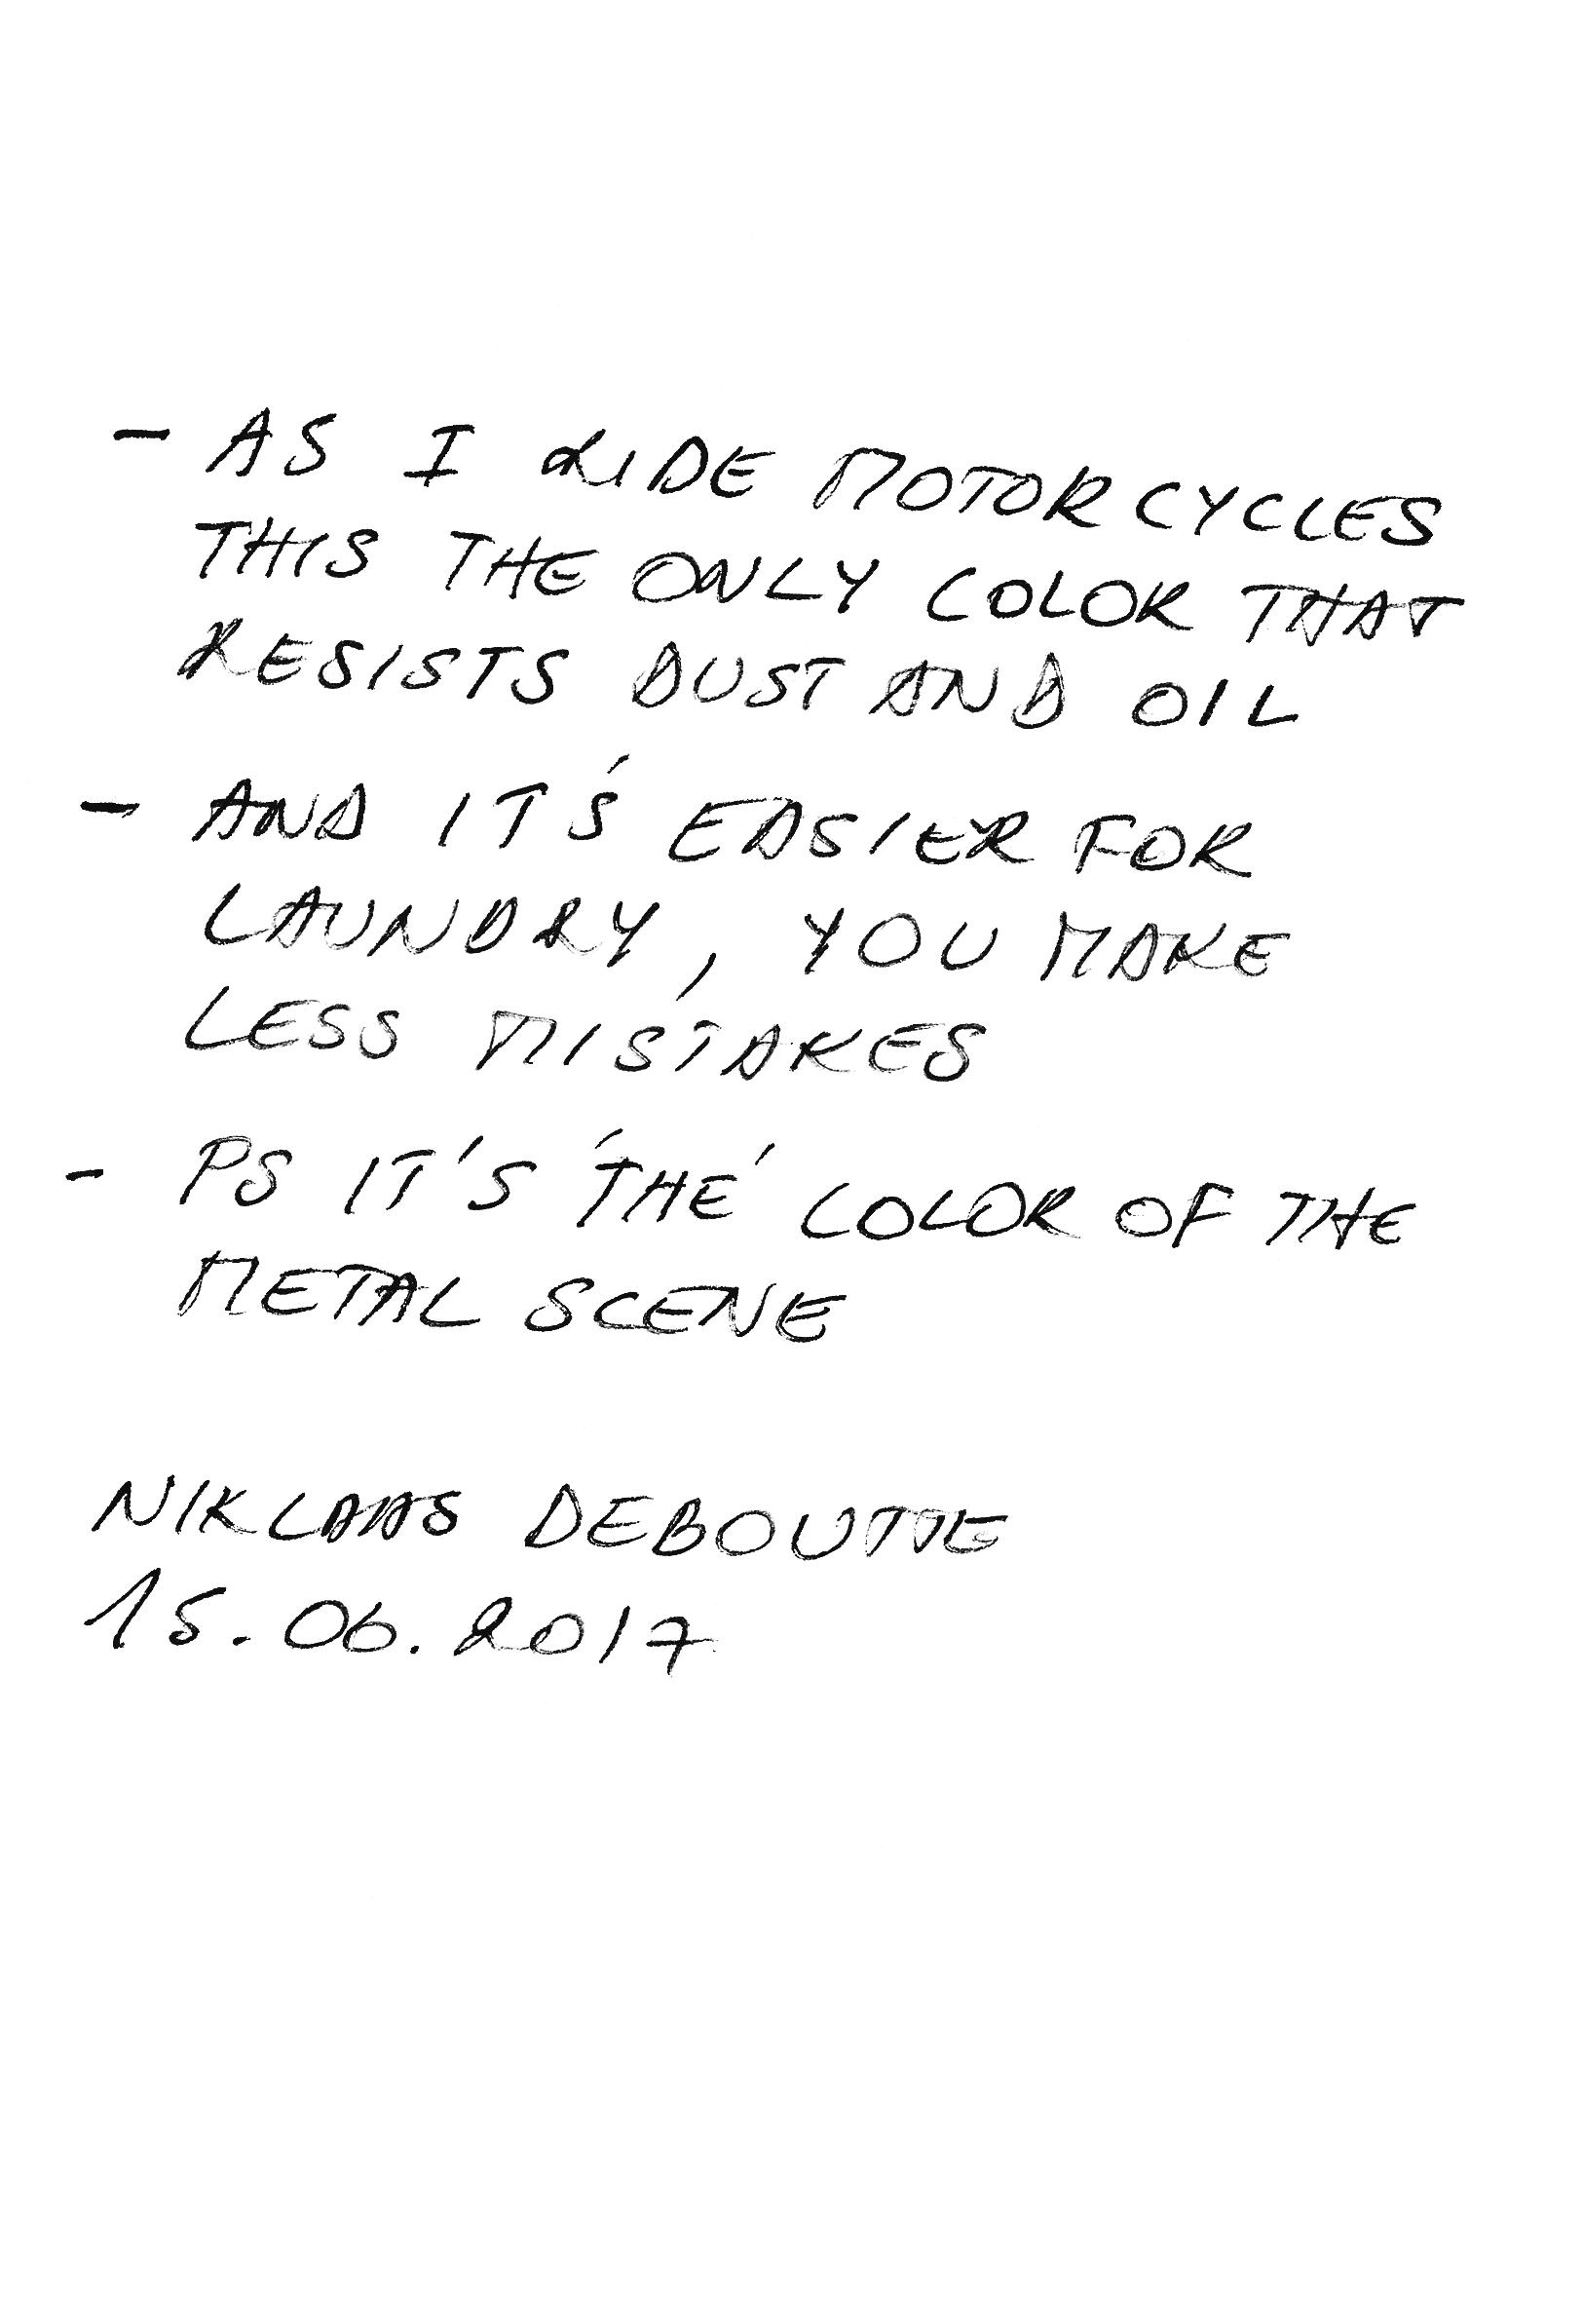 - AS I RIDE MOTORCYCLES
THIS THE ONLY COLOR THAT
RESISTS DUST AND OIL
- AND IT'S EASIER FOR
LAUNDRY, YOU MAKE
LESS MISTAKES
- PS IT'S 'THE' COLOR OF THE
METAL SCENE
NIKLAAS DEBOUTTE
15.06.2017